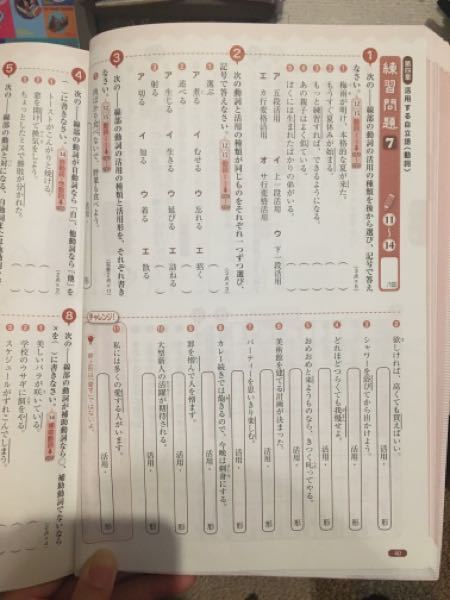 第四章 活用する自立語〈動詞〉
練習問題 7
11～14
/100
1 次の――線部の動詞の活用の種類を後から選び、記号で答え
なさい。
① 梅雨が明け、本格的な夏が来た。
② もうすぐ夏休みが始まる。
③ もっと練習すれば、できるようになる。
④ あの親子はよく似ている。
⑤ ぼくには生まれたばかりの弟がいる。
ア 五段活用 イ 上一段活用 ウ 下一段活用
エ カ行変格活用 オ サ行変格活用
2 次の動詞と活用の種類が同じものをそれぞれ一つずつ選び、
記号で答えなさい。
① 選ぶ
ア 切る イ むせる ウ 忘れる エ 招く
② 述べる
ア 生じる イ 生きる ウ 延びる エ 訪ねる
③ 射る
ア 煮る イ 知る ウ 着る エ 散る
3 次の――線部の動詞の活用の種類と活用形を、それぞれ書き
なさい。
① 肉ばかり食べないで、野菜も食べよう。
② 欲しければ、高くても買えばいい。
③ シャワーを浴びてから出かけよう。
④ どれほどつらくても我慢せよ。
⑤ おめおめと来ようものなら、きつく叱ってやる。
⑥ 美術館を建てる計画が決まった。
⑦ パーティーを思いきり楽しむ。
⑧ カレー続きでは飽きるので、今晩は刺身にする。
⑨ 罪を憎んで人を憎まず。
⑩ 大型新人の活躍が期待される。
チャレンジ!
⑪ 私には多くの愛する人がいます。
活用・ 形
4 次の――線部の動詞が自動詞なら「自」、他動詞なら「他」を
( )に書きなさい。
① トーストがこんがりと焼ける。
② 窓を開けて換気をしよう。
③ ちょっとしたミスで勝敗が分かれた。
5 次の――線部の動詞と対になる、自動詞または他動詞
8 次の――線部の動詞が補助動詞なら○、補助動詞でないなら
×を( )に書きなさい。
① 美しいバラが咲いている。
② 学校のウサギに餌をやる。
③ スケジュールがずれこんでしまう。
40